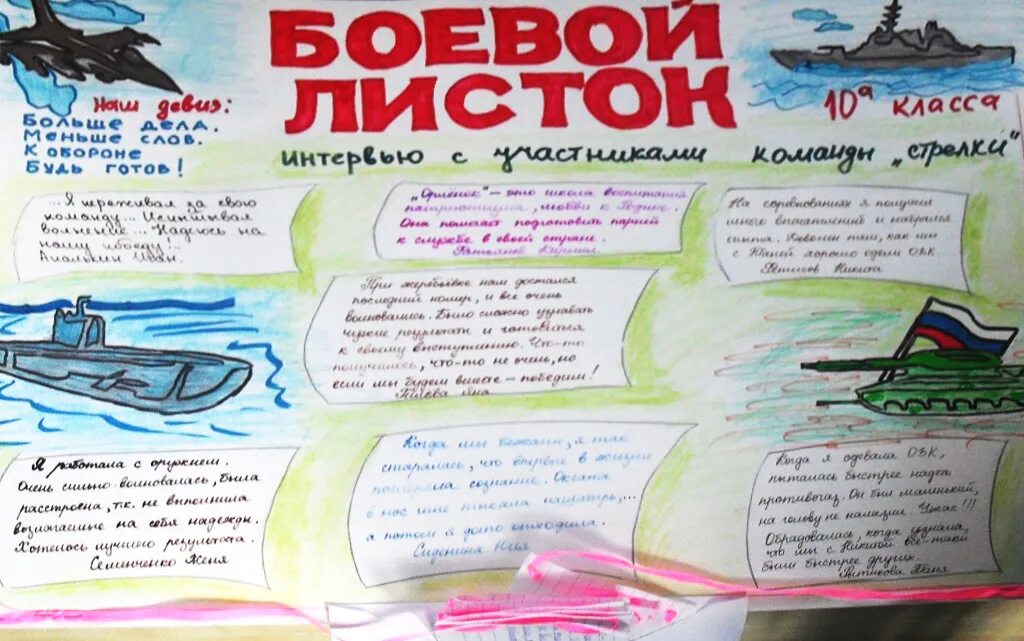 БОЕВОЙ
ЛИСТОК
10а класса
Наш девиз:
Больше дела.
Меньше слов.
К обороне
Будь готов!
интервью с участниками команды „стрелки"
...Я переживал за свою
команду... Испытывал
волнение... Надеюсь на
нашу победу!...
Иван.
„Орлёнок" – это школа воспитания
патриотизма, любви к Родине.
Она помогает подготовить парней
к службе в своей стране.
На соревнованиях я получил
много впечатлений и набрался
опыта. Доволен тем, как мы
с Таней хорошо одели ОЗК.
Никита
При жеребьёвке нам достался
последний номер, и все очень
волновались. Было сложно узнавать
чужие результаты и готовиться
к своему выступлению. Что-то
получилось, что-то не очень, но
если мы будем вместе – победим!
Яна
Я работала с оружием.
Очень сильно волновалась, была
расстроена, т.к. не выполнила
возлагаемые на себя надежды.
Хотелось лучшего результата.
Семинченко Женя
Когда мы бежали, я так
старалась, что впервые в жизни
потеряла сознание. Оксана
в нос мне тыкала нашатырь,...
а потом я долго отходила.
Сиденина Юля
Когда я одевала ОЗК,
пыталась быстрее надеть
противогаз. Он был маленький,
на голову не налазил. Ужас!!!
Обрадовалась, когда узнала,
что мы с Никитой всё-таки
были быстрее других.
Таня